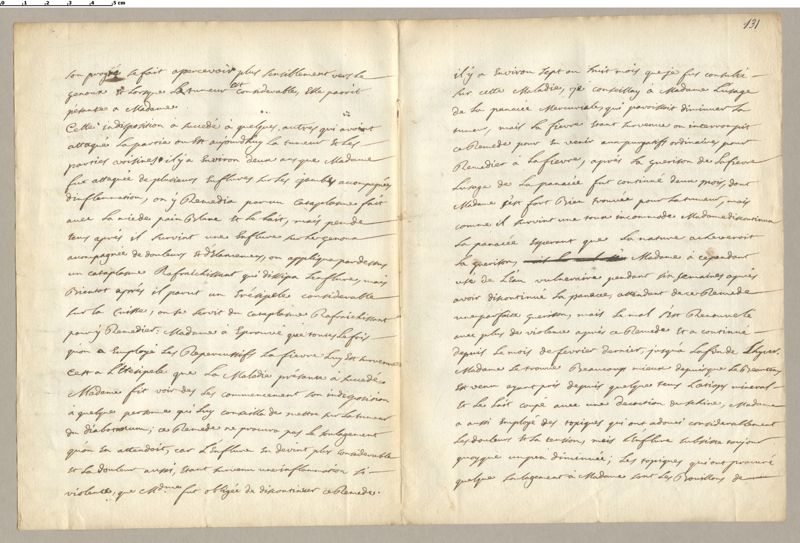 0 1 2 3 4 5 cm
son progrès se fait apercevoir plus sensiblement vers le
genoux et lorsque la tumeur est considerable, elle paroit
pesante a Madame.
Cette indisposition a succedé a quelques autres qui avoient
attaqué la partie ou est aujourdhuy la tumeur et les
parties voisines, il y a Environ deux ans que Madame
fut attaquée de plusieurs Enflures sur les jambes acompagnées
d'inflammation, on y Remedia par un cataplasme fait
avec la mie de pain Blanc et le lait, mais pende
tens aprés il survint une Enflure sur le genoux
acompagnée de douleurs et d'elancemens, on appliqua par dessus
un cataplasme Rafraichissant qui dissipa l'enflure, mais
Bientot aprés il parut un Erésipele considerable
sur la Cuisse, on se servit du cataplasme Rafraichissant
pour y Remedier. Madame a Eprouvé que toutes les fois
qu'on a Employé les Repercussifs la fievre luy est survenue
C'est a l'Erésipele que la Maladie présente a succedé,
Madame fit voir des les commencement son indisposition
a quelques personnes qui luy conseille de mettre sur la tumeur
du diabotanum; ce Remede ne procura pas le soulagement
qu'on En attendoit, car l'Enflure En devint plus considerable
et la douleur aussi, Etant survenu une inflammation si
violente, que Mdme fut obligée de discontinuer ce Remede.
131
il y a Environ sept ou huit mois que je fus consulté
sur cette Maladie, je conseillay a Madame l'usage
de la panacée Mercurielle, qui paroissoit diminuer la
tumeur, mais la fievre Etant survenue on interrompit
ce Remede pour En venir aux purgatifs ordinaires pour
Remedier a la fievre, aprés la guerison de la fievre
l'usage de la panacée fut continué deux mois, dont
Madame s'est fort Bien trouvée pour la tumeur, mais
comme il survint une toux incommode Madame discontinua
la panacée Esperant que la nature acheveroit
la guerison, Madame a cependant
usé de l'Eau vulneraire pendant six semaines aprés
avoir discontinué la panacée, attendant de ce Remede
une parfaite guerison, mais le mal s'est Renouvellé
avec plus de violence aprés ce Remede et a continué
depuis le mois de fevrier dernier, jusqu'a la fin de l'hyver.
Madame se trouve Beaucoup mieux depuis que le Printems
est venu ayant pris depuis quelques tens l'atiops mineral
et le lait coupé avec une decoction de schine, Madame
a aussi Employé des topiques qui ont adouci considerablement
les douleurs et la tension, mais l'Enflure subsiste toujours
quoyque un peu diminuée; Les topiques qui ont procuré
quelque soulagement a Madame sont les Bouillons de